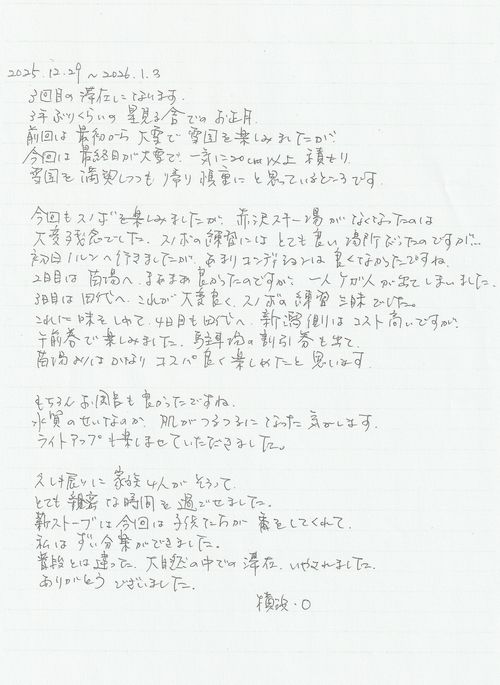 2025.12.29 ~ 2026.1.3
3回目の滞在になります.
3年ぶりくらいの星見る舎でのお正月.
前回は最初から大雪で雪国を楽しみましたが
今回は最終日が大雪で、一気に20cm以上積もり.
雪国を満喫しつつも帰り慎重にと思っているところです.
今回もスノボを楽しみましたが、赤沢スキー場がなくなったのは
大変残念でした. スノボの練習にはとても良い場所だったのですが…
初日ノルンへ行きましたが、あまりコンディションは良くなかったですね.
2日目は苗場へ. まあまあ良かったのですが、一人ケガ人が出てしまいました.
3日目は田代へ. これが大変良く、スノボの練習三昧でした.
これに味をしめて、4日目も田代へ. 新潟側はコスト高いですが、
午前券で楽しみました. 駐車場の割引券も出て、
苗場よりはかなりコスパ良く楽しめたと思います.
もちろんお風呂も良かったですね.
水質のせいなのか、肌がつるつるになった気がします.
ライトアップも楽しませていただきました.
久し振りに家族4人がそろって、
とても親密な時間を過ごせました.
薪ストーブは今回は子供たちが番をしてくれて、
私はずい分楽ができました.
普段とは違った、大自然の中での滞在、いやされました.
ありがとうございました.
横浜・O